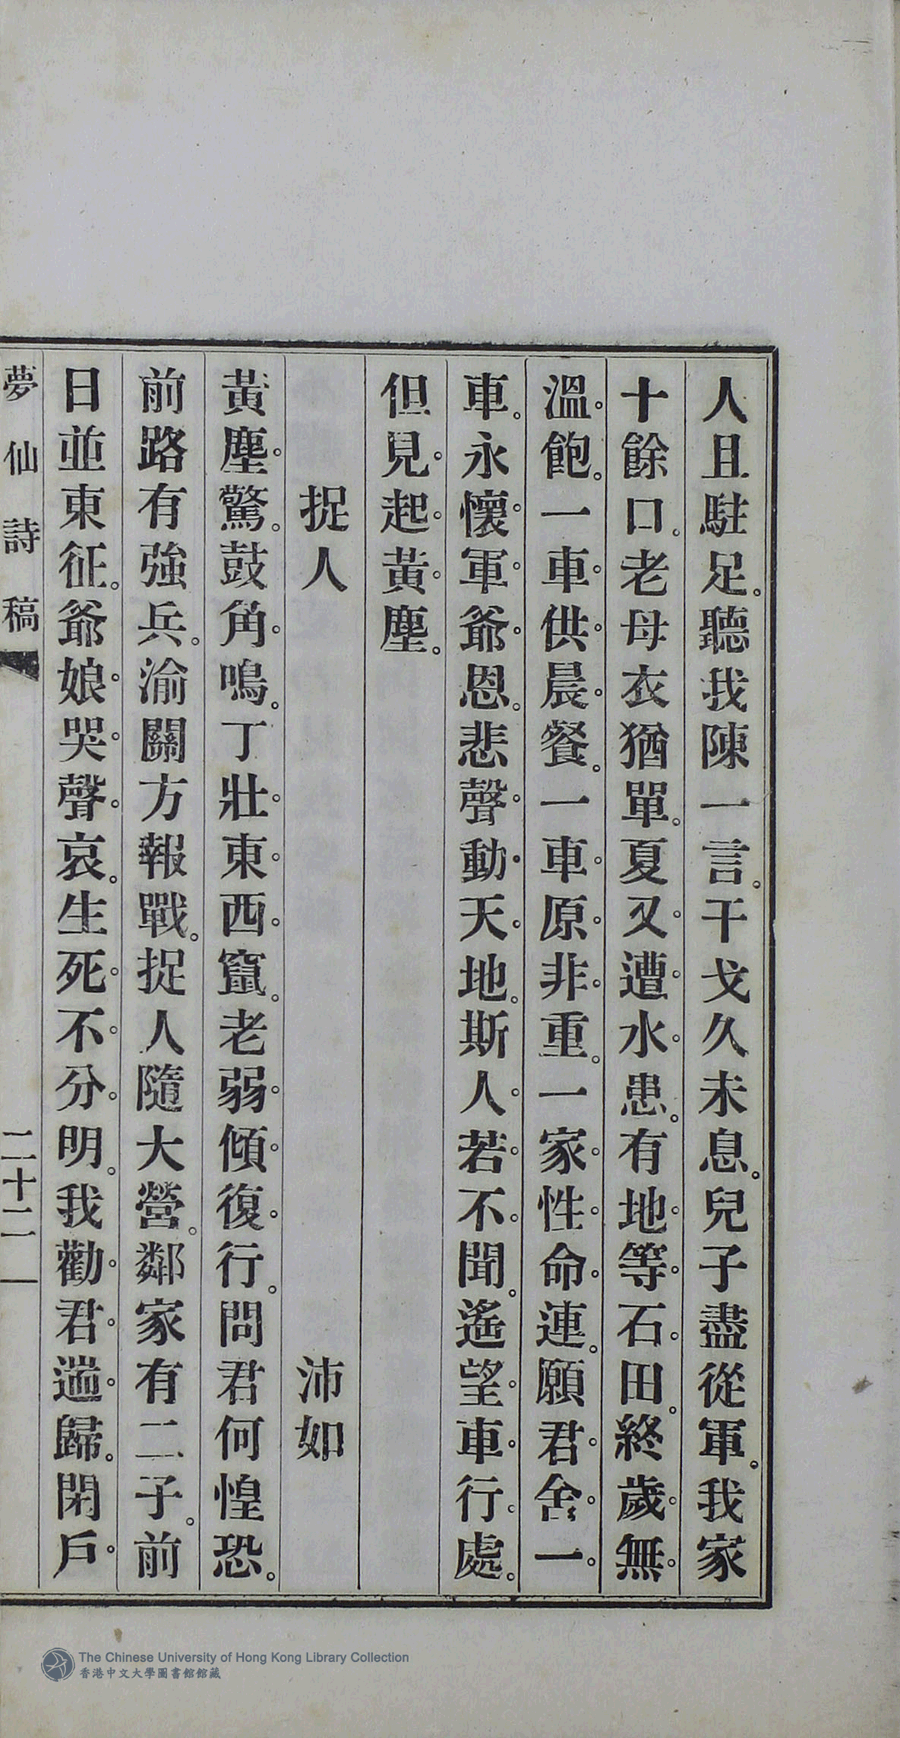 人且駐足。聽我陳一言。干戈久未息。兒子盡從軍。我家
十餘口。老母衣猶單。夏又遭水患。有地等石田。終歲無
溫飽。一車供晨餐。一車原非重。一家性命連。願君舍一
車。永懷軍爺恩。悲聲動天地。斯人若不聞。遙望車行處。
但見起黃塵。
捉人 沛如
黃塵驚。鼓角鳴。丁壯東西竄。老弱傾復行。問君何惶恐。
前路有強兵。渝關方報戰。捉人隨大營。鄰家有二子。前
日並東征。爺娘哭聲哀。生死不分明。我勸君遄歸。閉戶
夢仙詩稿 二十二
The Chinese University of Hong Kong Library Collection
香港中文大學圖書館館藏